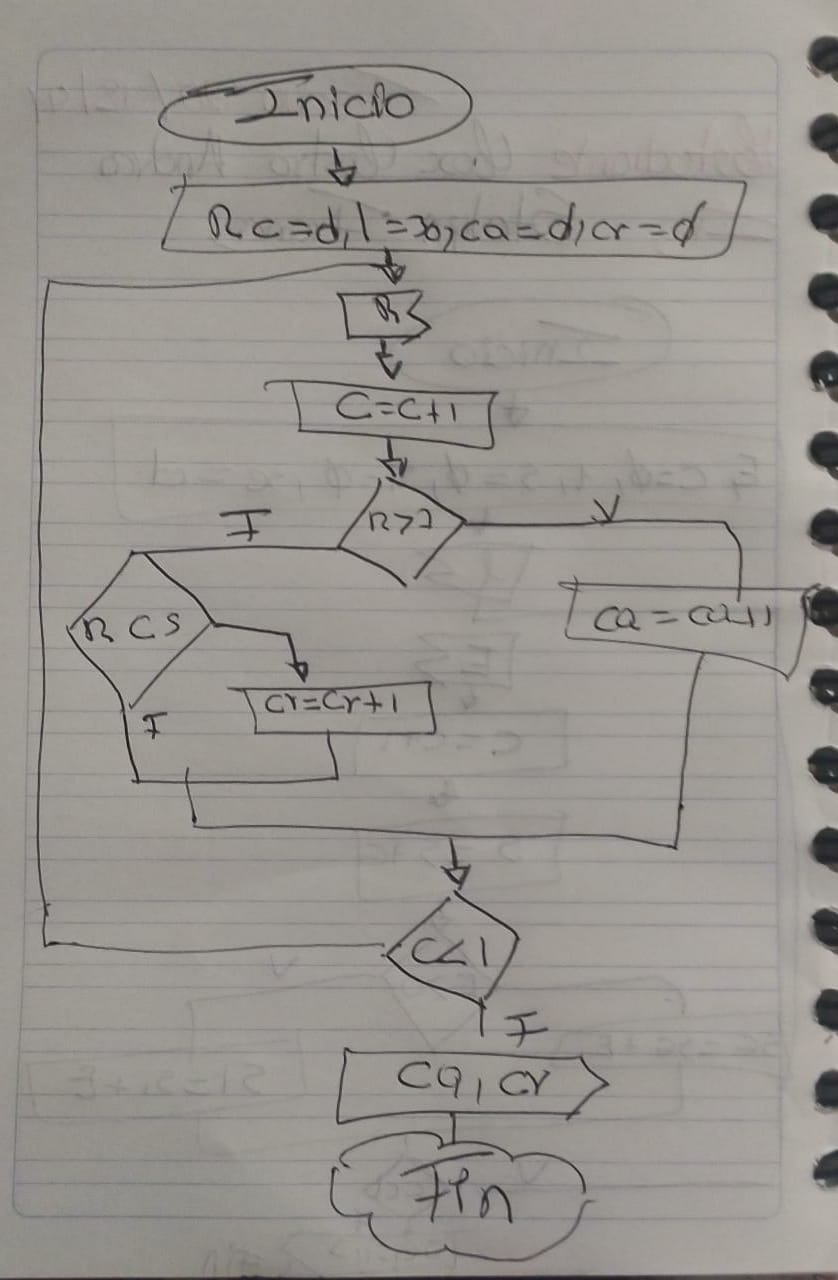 Inicio
R C=ф, l=30, ca=ф, cr=ф
R
C=C+1
R>7
F
V
R<5
ca=ca+1
cr=cr+1
F
C<l
F
ca, cr
Fin